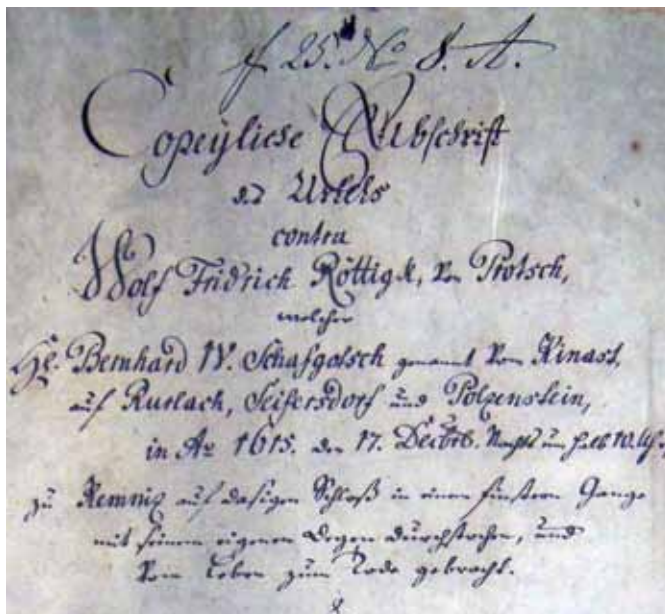 f 25. No 8. A.
Copeyliche Abschrift
des Urtels
contra
Wolf Fridrich Röttigk, von Protsch,
welcher
H: Bernhard IV. Schafgotsch genannt vom Kinast,
auf Rurlach, Seifersdorf und Polzenstein,
in Ao 1615. den 17. Decbrb. Nachts um halb 10. Uhr,
zu Kemniz auf dasigen Schloß in einem finstern Gange
mit seinem eigenen Degen durchstochen, und
vom Leben zum Tode gebracht.